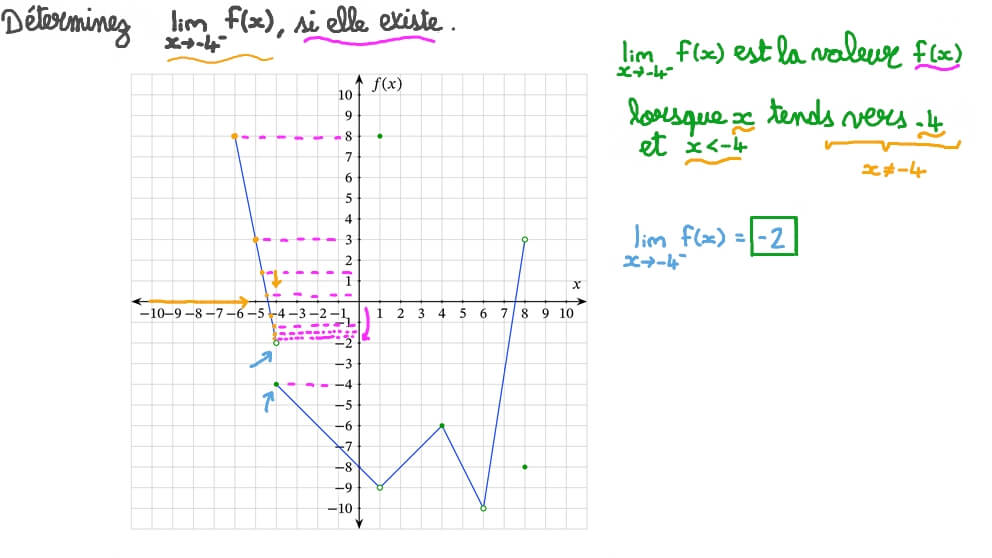 Déterminez lim f(x), si elle existe.
x→-4⁻
lim f(x) est la valeur f(x)
x→-4⁻
lorsque x tends vers -4
et x<-4
x≠-4
lim f(x) = -2
x→-4⁻
f(x)
10
9
8
7
6
5
4
3
2
1
x
−10 −9 −8 −7 −6 −5 −4 −3 −2 −1 1 2 3 4 5 6 7 8 9 10
−1
−2
−3
−4
−5
−6
−7
−8
−9
−10